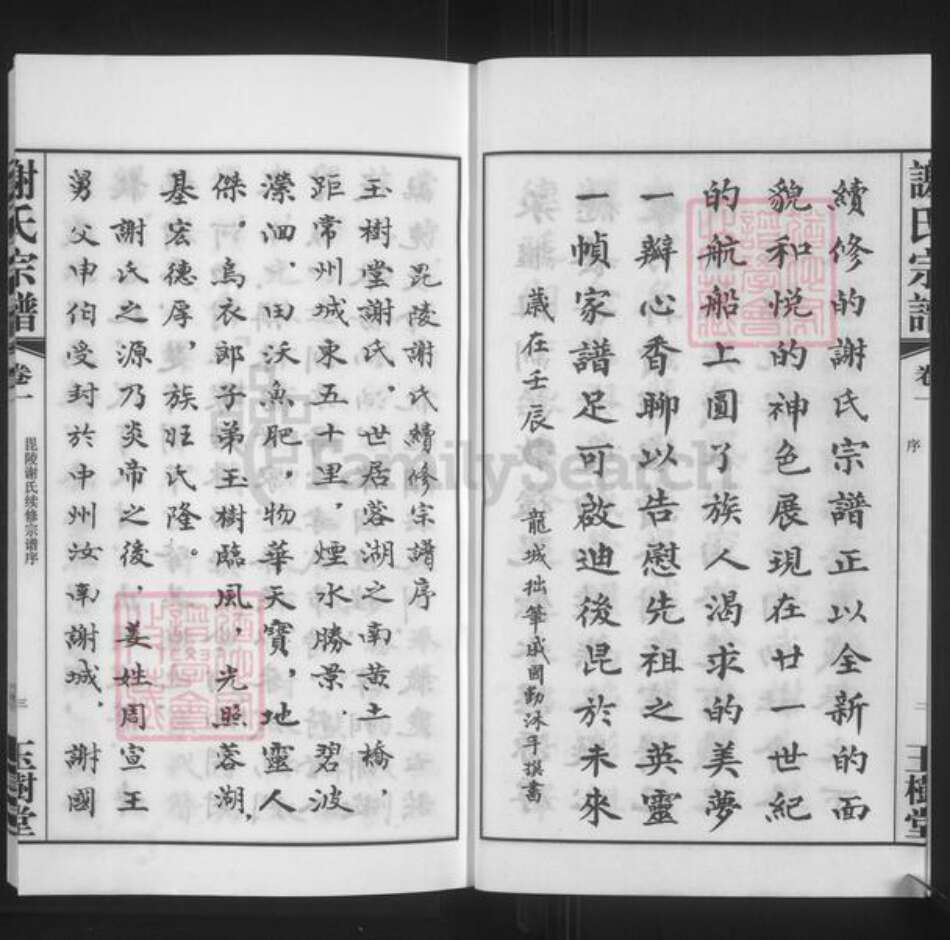 謝氏宗譜
卷一
序
二
玉樹堂
續修的謝氏宗譜正以全新的面
貌和悦的神色展現在廿一世紀
的航船上圓了族人渴求的美夢
一瓣心香聊以告慰先祖之英靈
一幀家譜足可啟迪後昆於未來
歲在壬辰 龍城拙筆戚國勤沐手撰書
毘陵謝氏續修宗譜序
玉樹堂謝氏，世居蓉湖之南黄土橋，
距常州城東五十里，煙水勝景，碧波
濼洄，田沃魚肥，物華天寳，地靈人
傑，烏衣郎子弟玉樹臨風，光照蓉湖，
基宏德厚，族旺氏隆。
謝氏之源乃炎帝之後，姜姓周宣王
舅父申伯受封於申州汝南謝城，謝國
謝氏宗譜
卷一
毘陵谢氏续修宗谱序
三
玉樹堂
FamilySearch